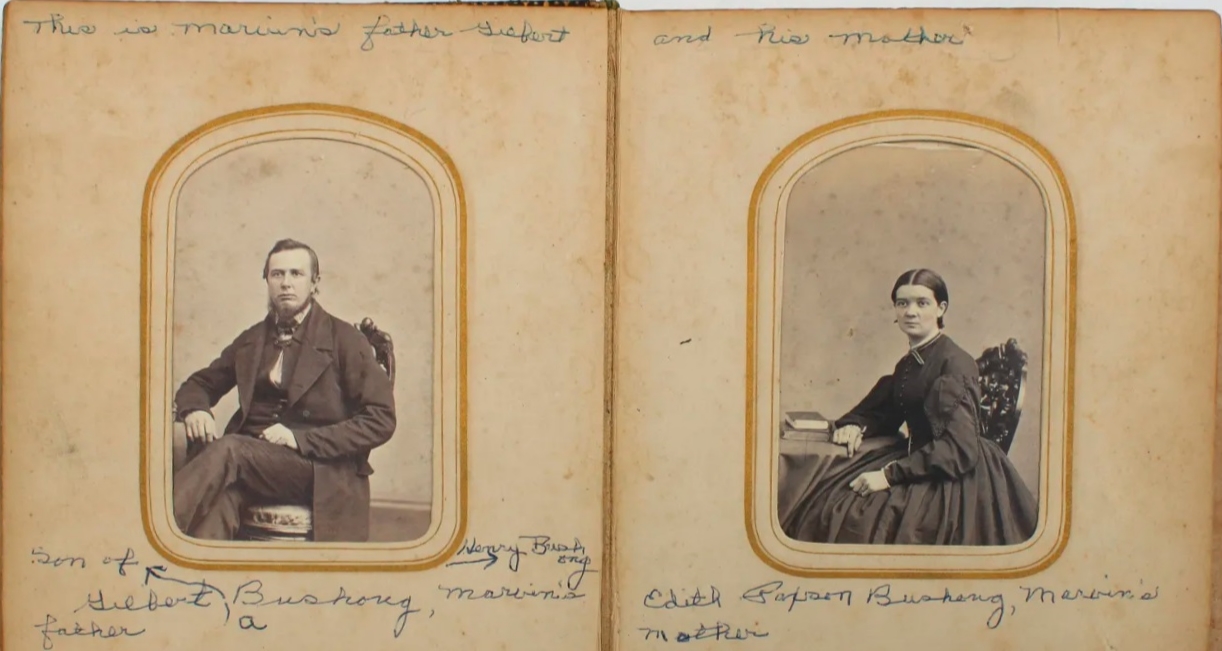 This is Marvin's father Gilbert
and his mother
Son of
Henry Bush
ong
Gilbert, Bushong, Marvin's
a
father
Edith Papson Bushong, Marvin's
Mother